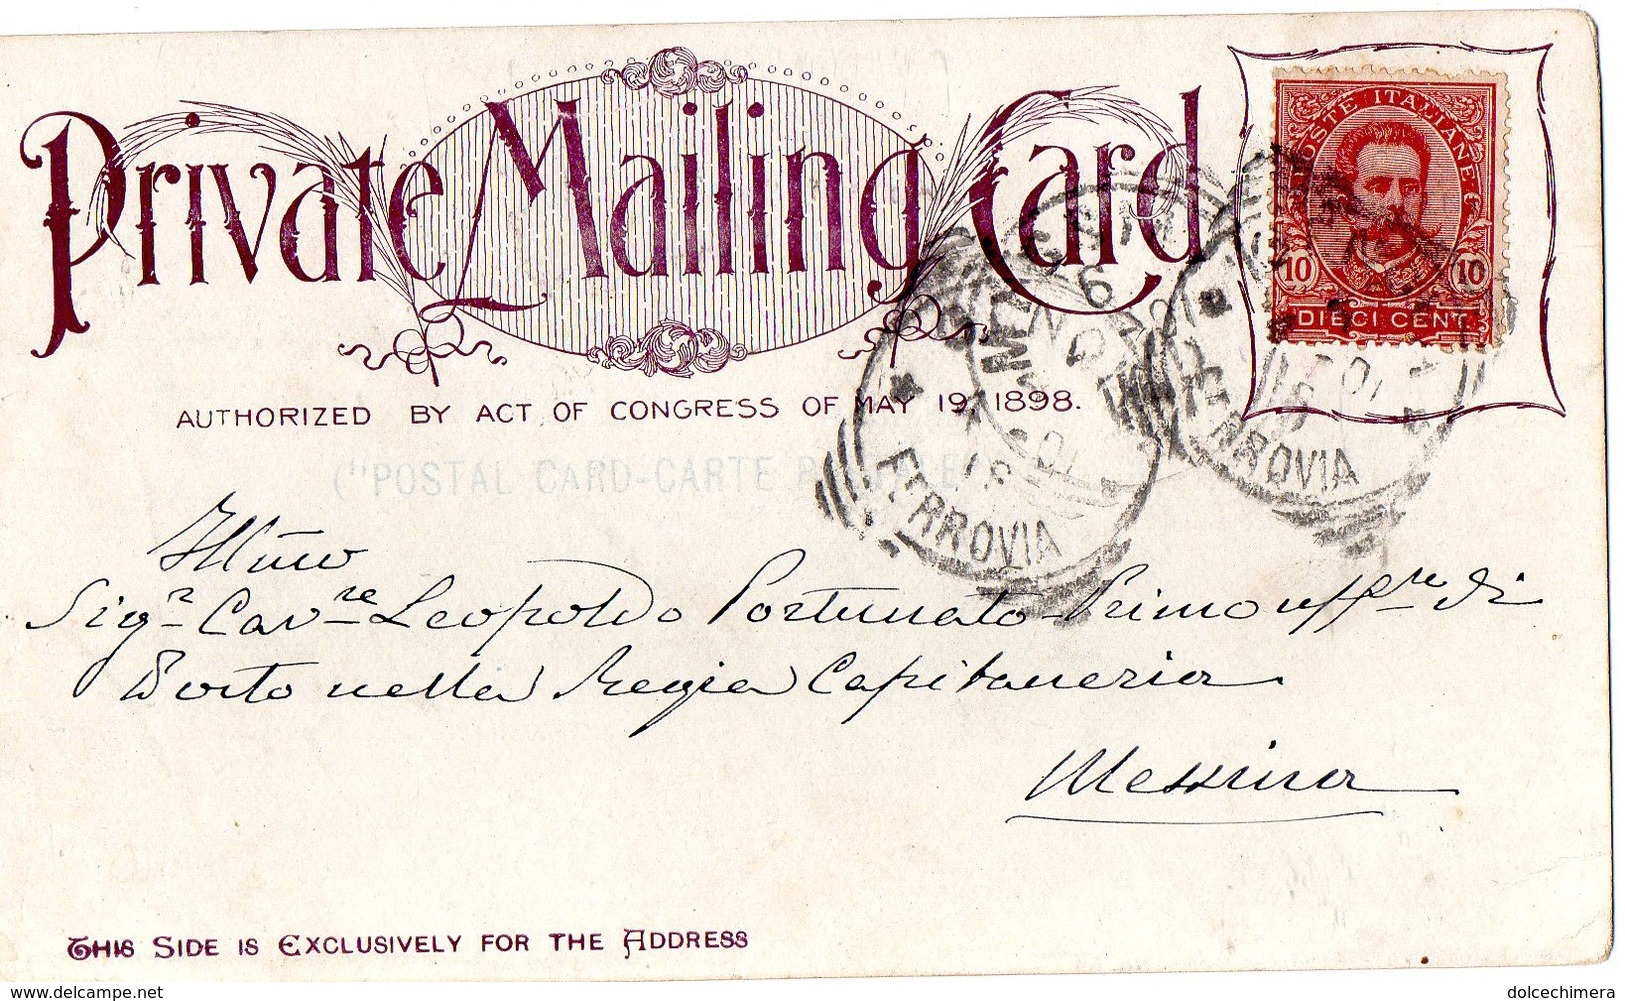 Private Mailing Card
POSTE ITALIANE
10 10
DIECI CENT.
AUTHORIZED BY ACT OF CONGRESS OF MAY 19, 1898.
("POSTAL CARD-CARTE POSTALE")
FERROVIA
FERROVIA
Illmo
Sigr Cavre Leopoldo Fortunato Primo uffre di
Porto nella Regia Capitaneria
Messina
THIS SIDE IS EXCLUSIVELY FOR THE ADDRESS
www.delcampe.net
dolcechimera